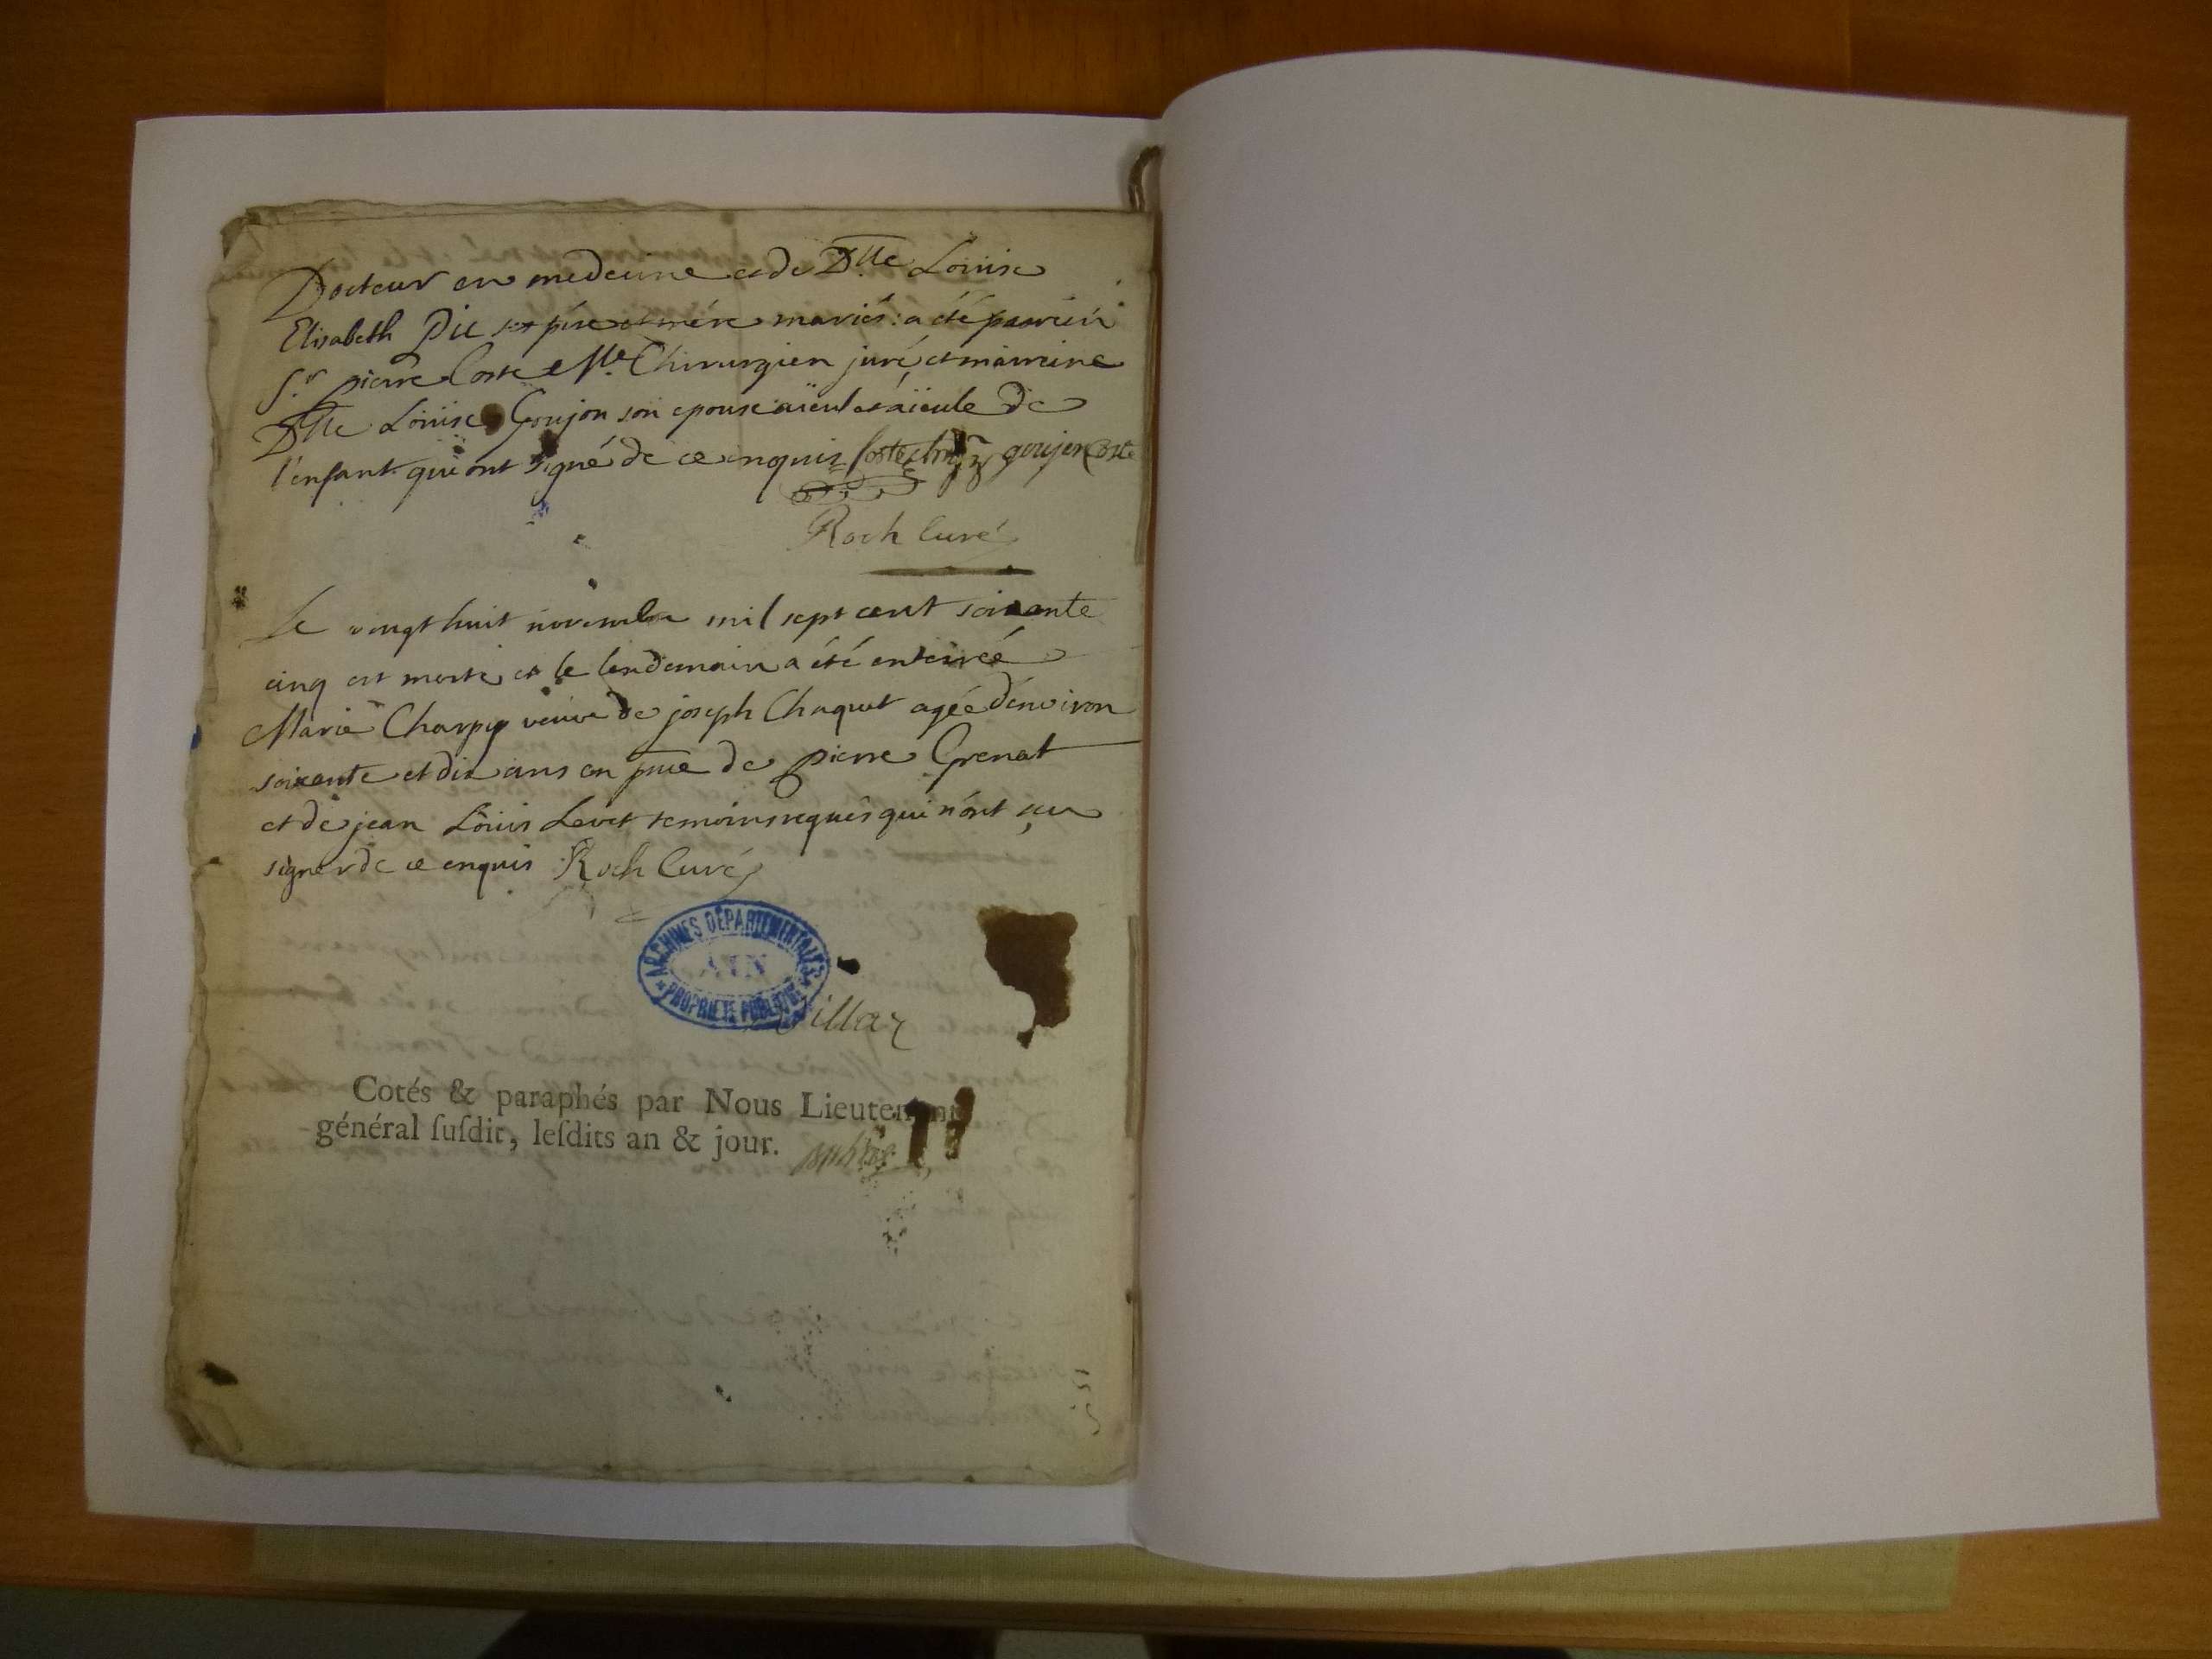 Docteur en medecine et de Dlle Louise
Elisabeth Pic ses père et mère mariés : a été parrein
Sr. pierre Coste Me. Chirurgien juré, et marreine
Dlle Louise Goujon son epouse aïeul et aïeule de
l'enfant qui ont signé de ce enquis Coste goujon Coste
Roch Curé
Le vingt huit novembre mil sept cent soixante
cinq est morte et le lendemain a été enterrée
Marie Charpy veuve de joseph Chaquet agée d'environ
soixante et dix ans en pnce de pierre Grenat
et de jean Louis Levet temoins requis qui n'ont sçu
signer de ce enquis Roch Curé
ARCHIVES DÉPARTEMENTALES
AIN
PROPRIÉTÉ PUBLIQUE
Cotés & paraphés par Nous Lieutenant
général ſuſdit, leſdits an & jour.